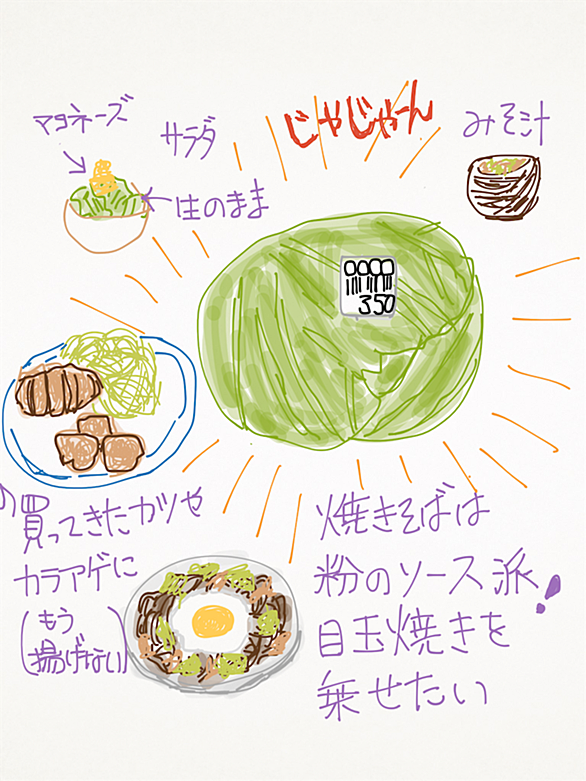 マヨネーズ
サラダ
じゃじゃーん
みそ汁
生のまま
350
買ってきたカツや
カラアゲに
(もう
揚げない)
焼きそばは
粉のソース派!
目玉焼きを
乗せたい